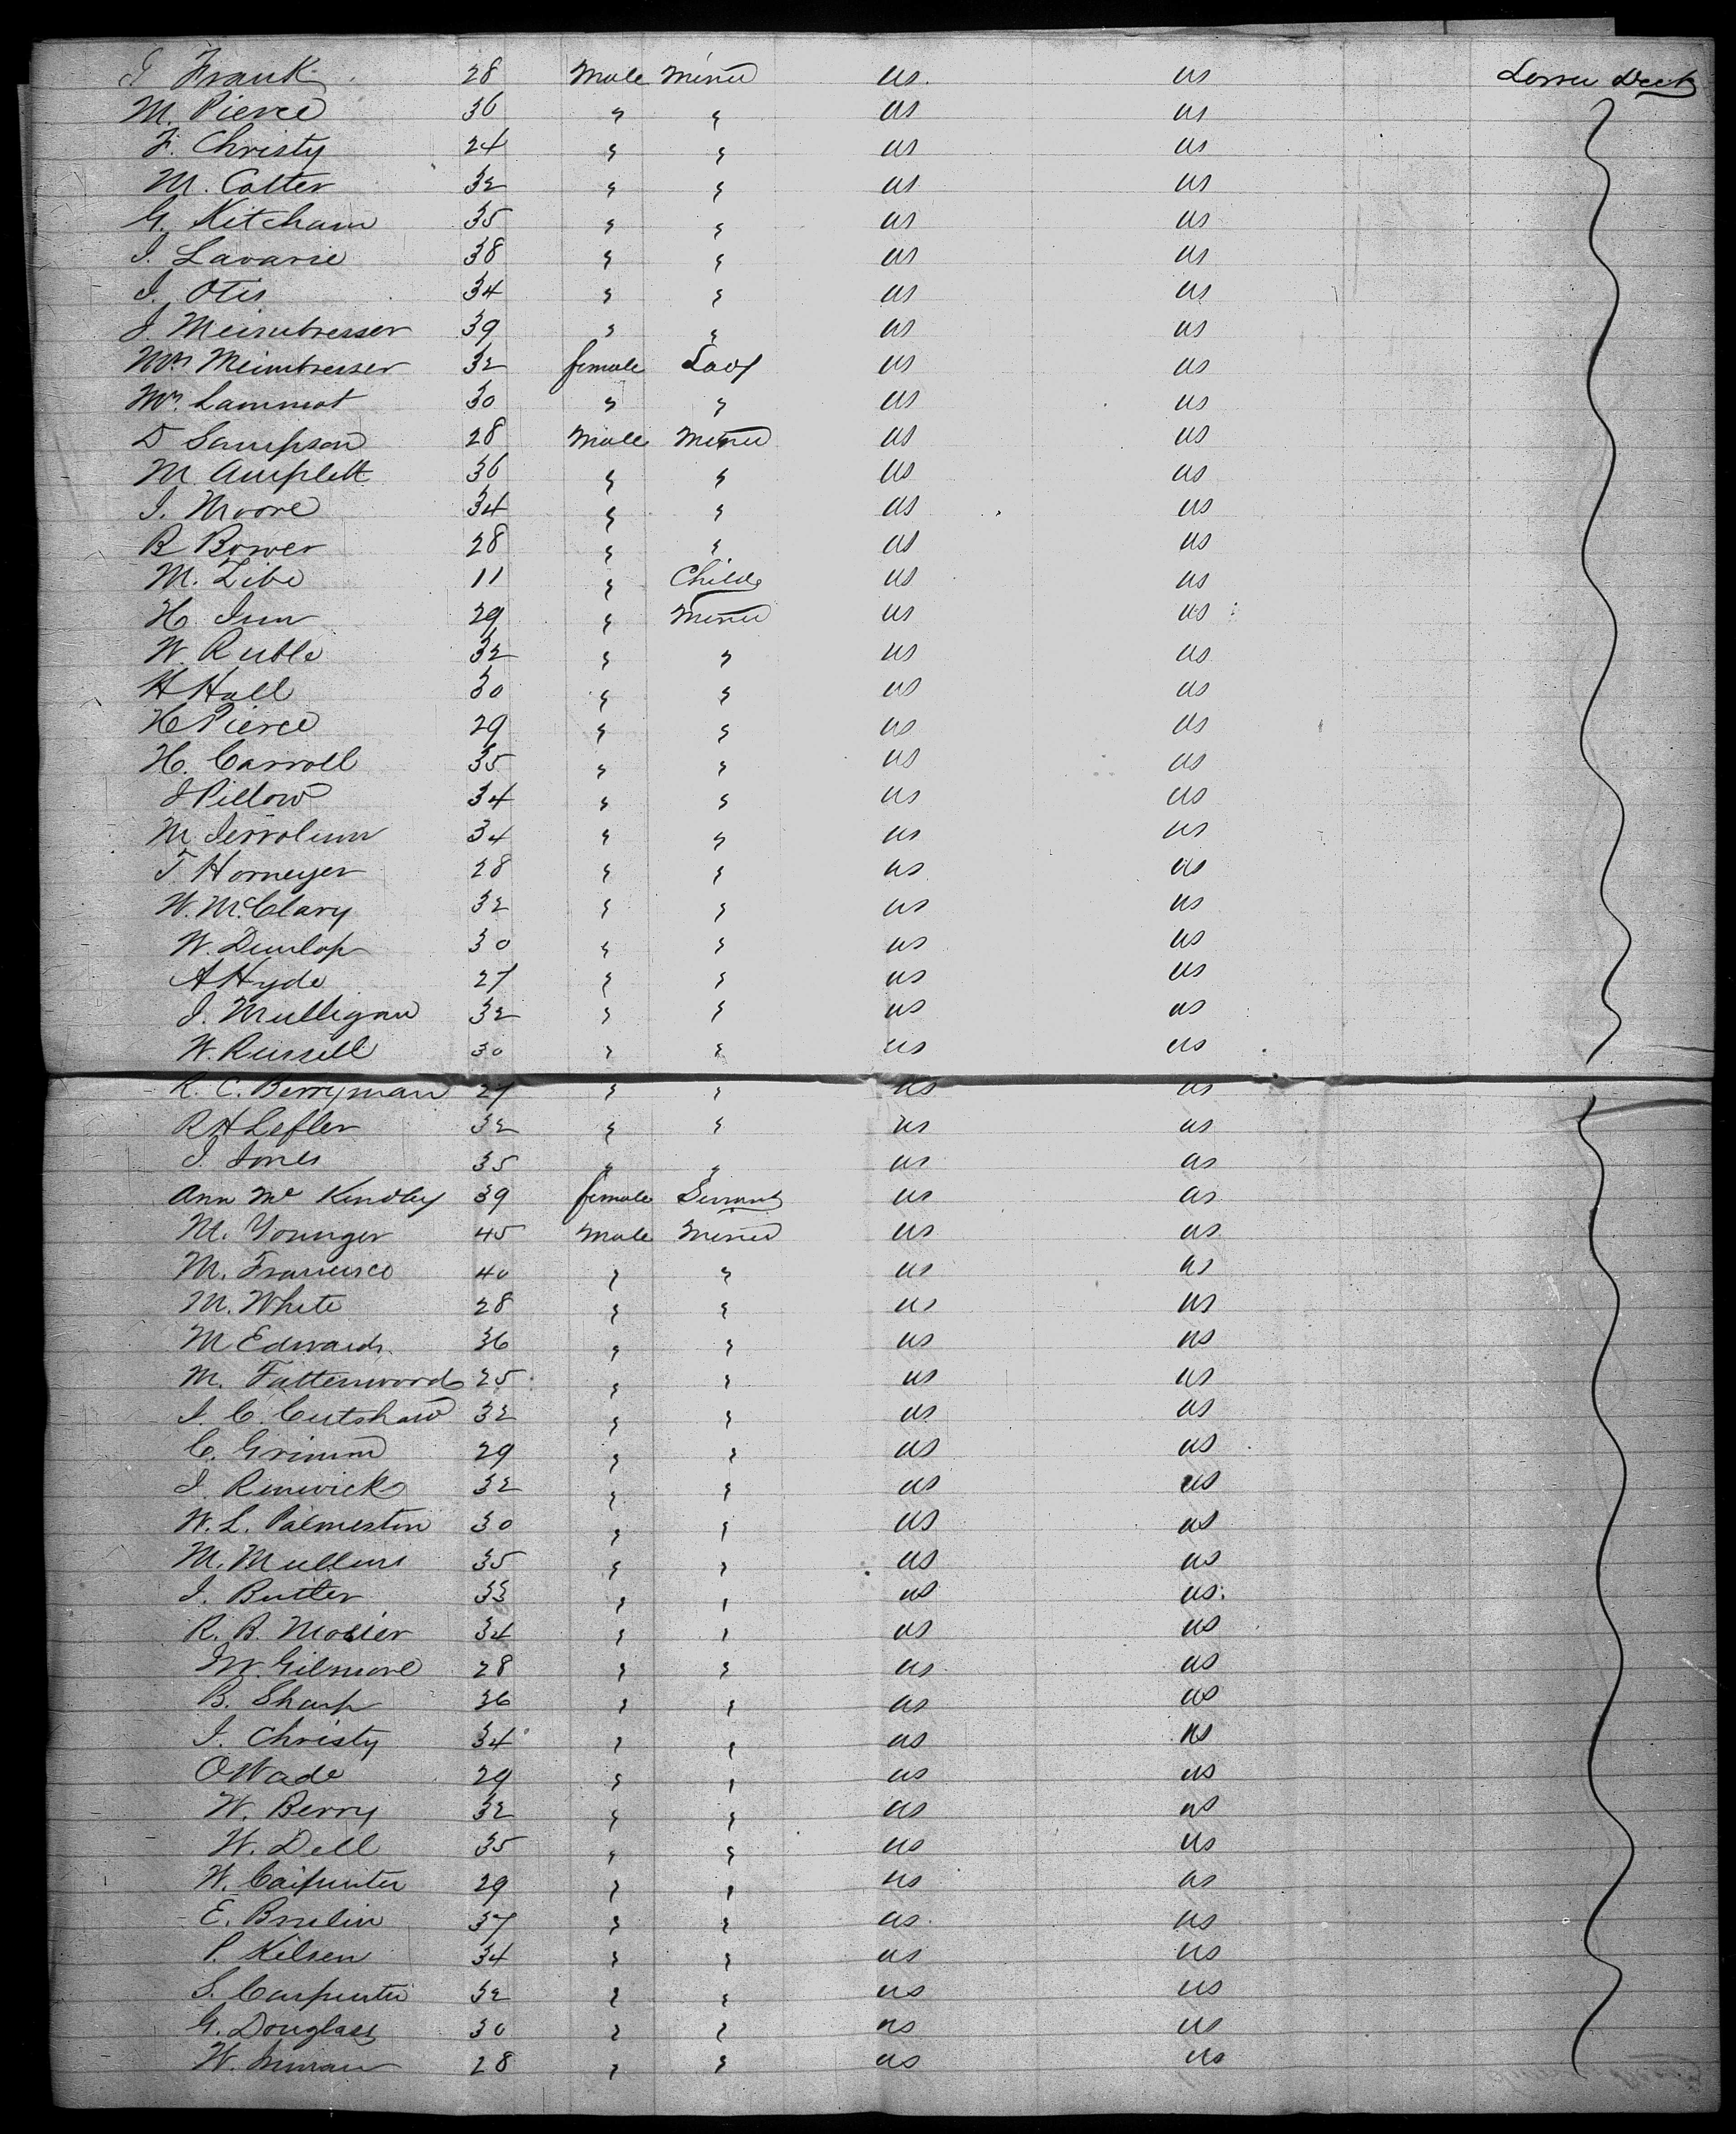 J Frank 28 Male Miner us us Lower Deck
M. Pierce 36 " " us us
F. Christy 24 " " us us
M. Colter 32 " " us us
G. Kitcham 35 " " us us
J. Lavarie 38 " " us us
J. Otis 34 " " us us
J Meimbresser 39 " " us us
Mrs Meimbresser 32 female Lady us us
Mrs. Lammot 30 " " us us
D Sampson 28 Male Miner us us
M Amplett 36 " " us us
J. Moore 34 " " us us
R Bower 28 " " us us
M. Zibe 11 " Child us us
H. Inn 29 " Miner us us
W. Ruble 32 " " us us
H Hall 30 " " us us
H Pierce 29 " " us us
H. Carroll 35 " " us us
J Pillow 34 " " us us
M 34 " " us us
T Homeyer 28 " " us us
W. McClary 32 " " us us
W. Dunlop 30 " " us us
A Hyde 27 " " us us
J. Mulligan 32 " " us us
W. Russell 30 " " us us
R. C. Berryman 27 " " us us
R H Lefler 32 " " us us
J. Jones 35 " " us us
Ann Mc Kendley 39 female Servant us us
M. Younger 45 Male Miner us us
M. Francisco 40 " " us us
M. White 28 " " us us
M Edwards 36 " " us us
M. Fattenwood 25 " " us us
J. C. Cutshaw 32 " " us us
C. Grimm 29 " " us us
J. Renwick 32 " " us us
W. L. Palmeston 30 " " us us
M. Mullins 35 " " us us
J. Butler 33 " " us us
R. B. Mosier 34 " " us us
J W. Gilmore 28 " " us us
B. Sharp 36 " " us us
J. Christy 34 " " us us
O Wade 29 " " us us
W. Berry 32 " " us us
W. Dell 35 " " us us
W. Carpenter 29 " " us us
E. Brulin 37 " " us us
P. Kelsen 34 " " us us
S. Carpenter 32 " " us us
G. Douglass 30 " " us us
W. Inman 28 " " us us